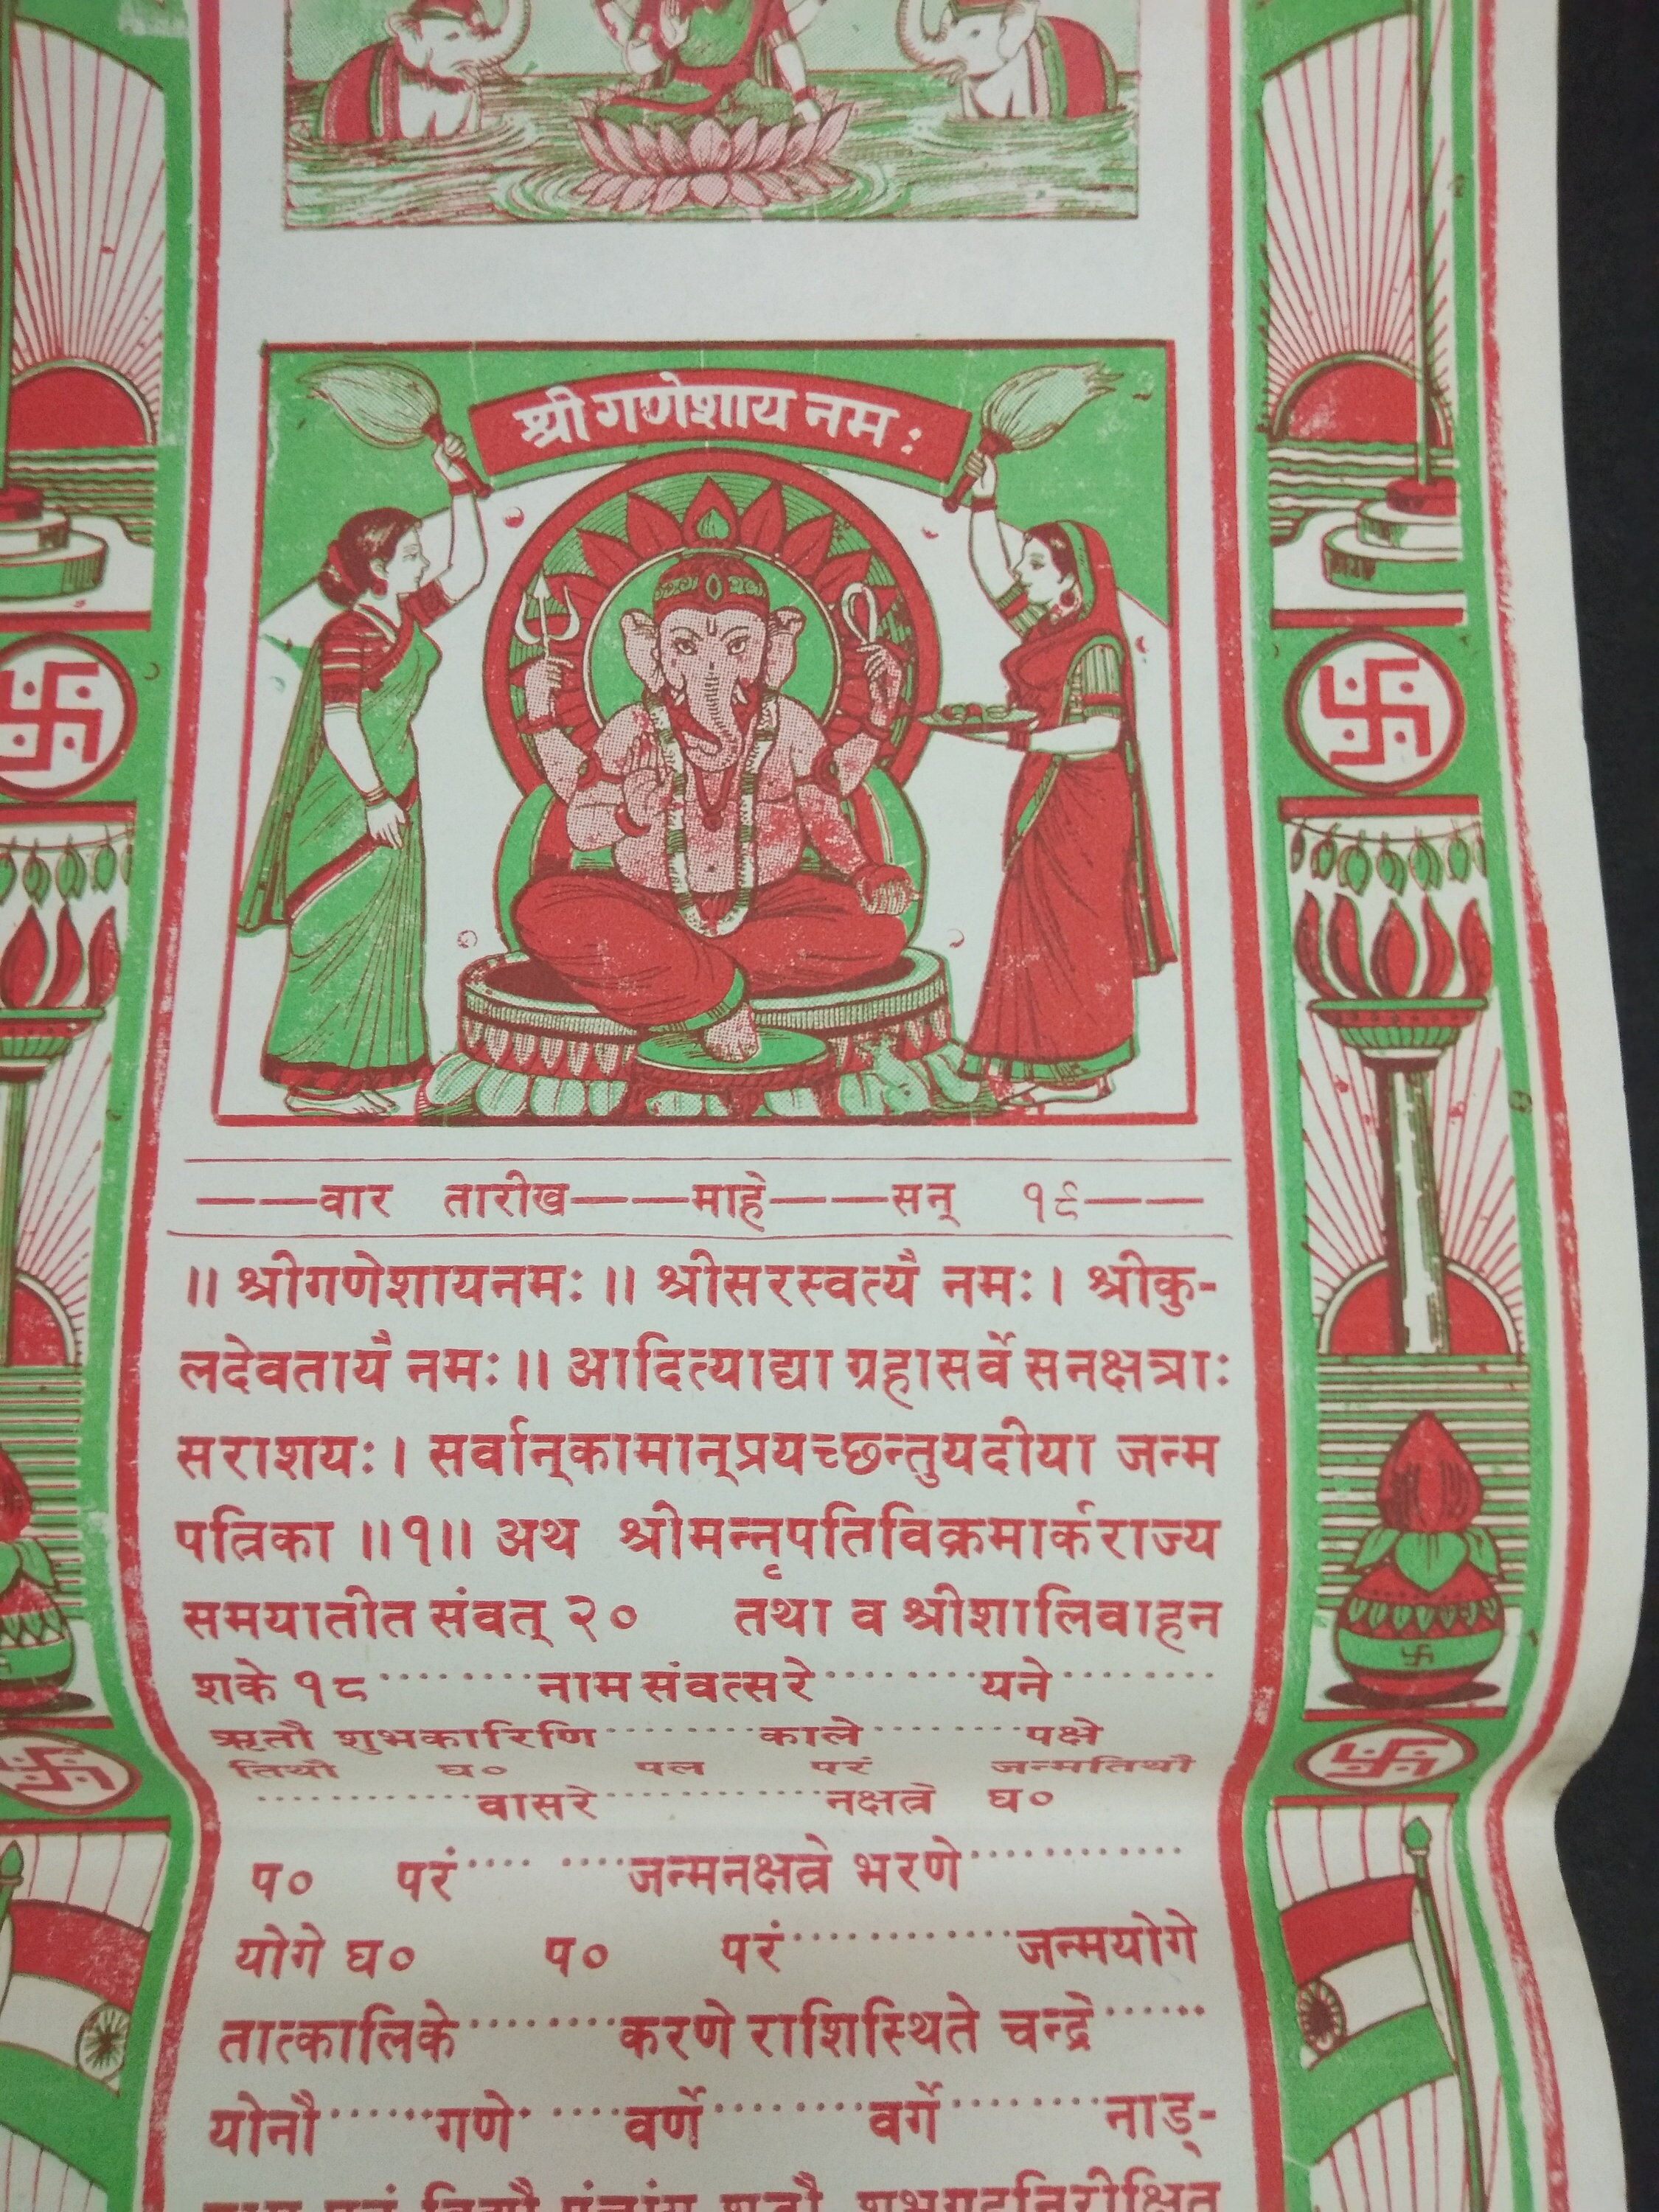 श्री गणेशाय नमः
——वार तारीख——माहे——सन् १९——
॥ श्रीगणेशायनमः ॥ श्रीसरस्वत्यै नमः । श्रीकु-
लदेवतायै नमः ॥ आदित्याद्या ग्रहासर्वे सनक्षत्राः
सराशयः । सर्वान्कामान्प्रयच्छन्तुयदीया जन्म
पत्रिका ॥१॥ अथ श्रीमन्नृपतिविक्रमार्कराज्य
समयातीत संवत् २० तथा व श्रीशालिवाहन
शके १८ ........ नाम संवत्सरे ........ यने ........
ऋतौ शुभकारिणि ........ काले ........ पक्षे
तिथौ घ० पल परं जन्मतिथौ
............ वासरे ............ नक्षत्रे घ०
प० परं .... .... जन्मनक्षत्रे भरणे ............
योगे घ० प० परं ............ जन्मयोगे
तात्कालिके ........ करणे राशिस्थिते चन्द्रे ......
योनौ ...... गणे ..... वर्णे ........ वर्गे ........ नाड्-